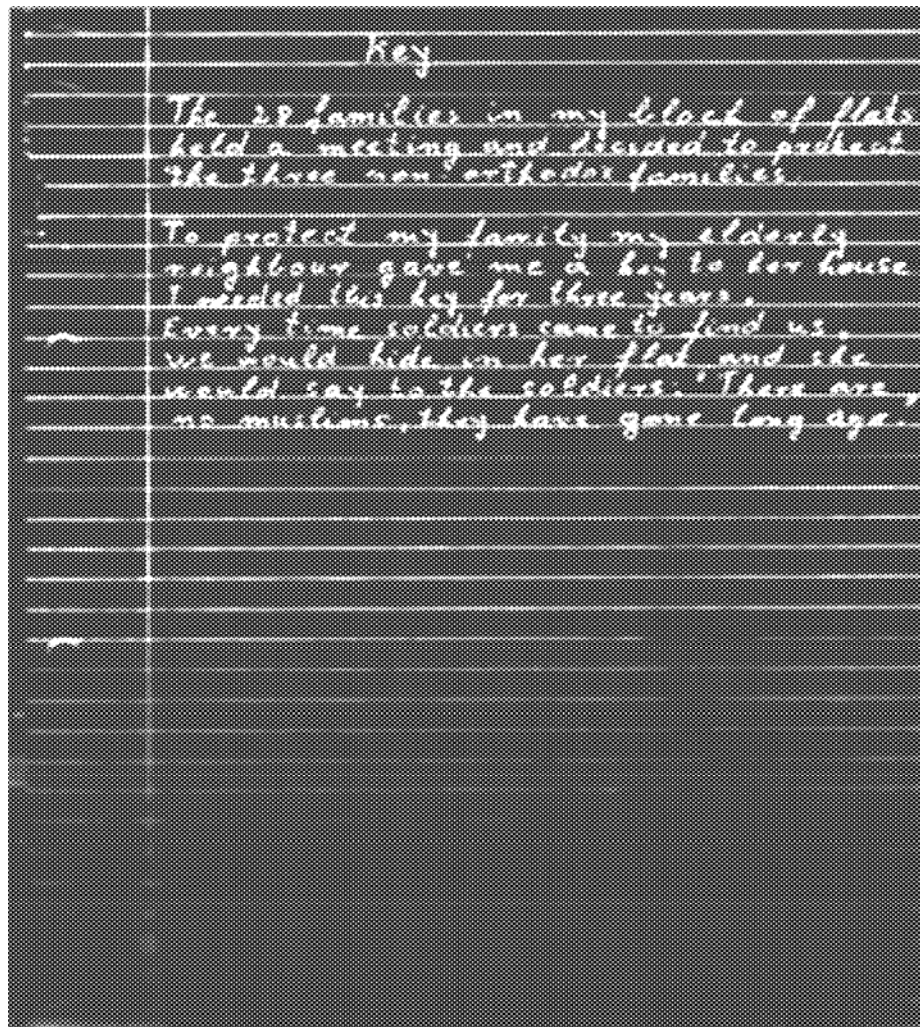 Key
The 28 families in my block of flats
held a meeting and decided to protect
the three non orthodox families.
To protect my family my elderly
neighbour gave me a key to her house
I needed this key for three years.
Every time soldiers came to find us,
we would hide in her flat, and she
would say to the soldiers: 'There are
no muslims, they have gone long ago.'